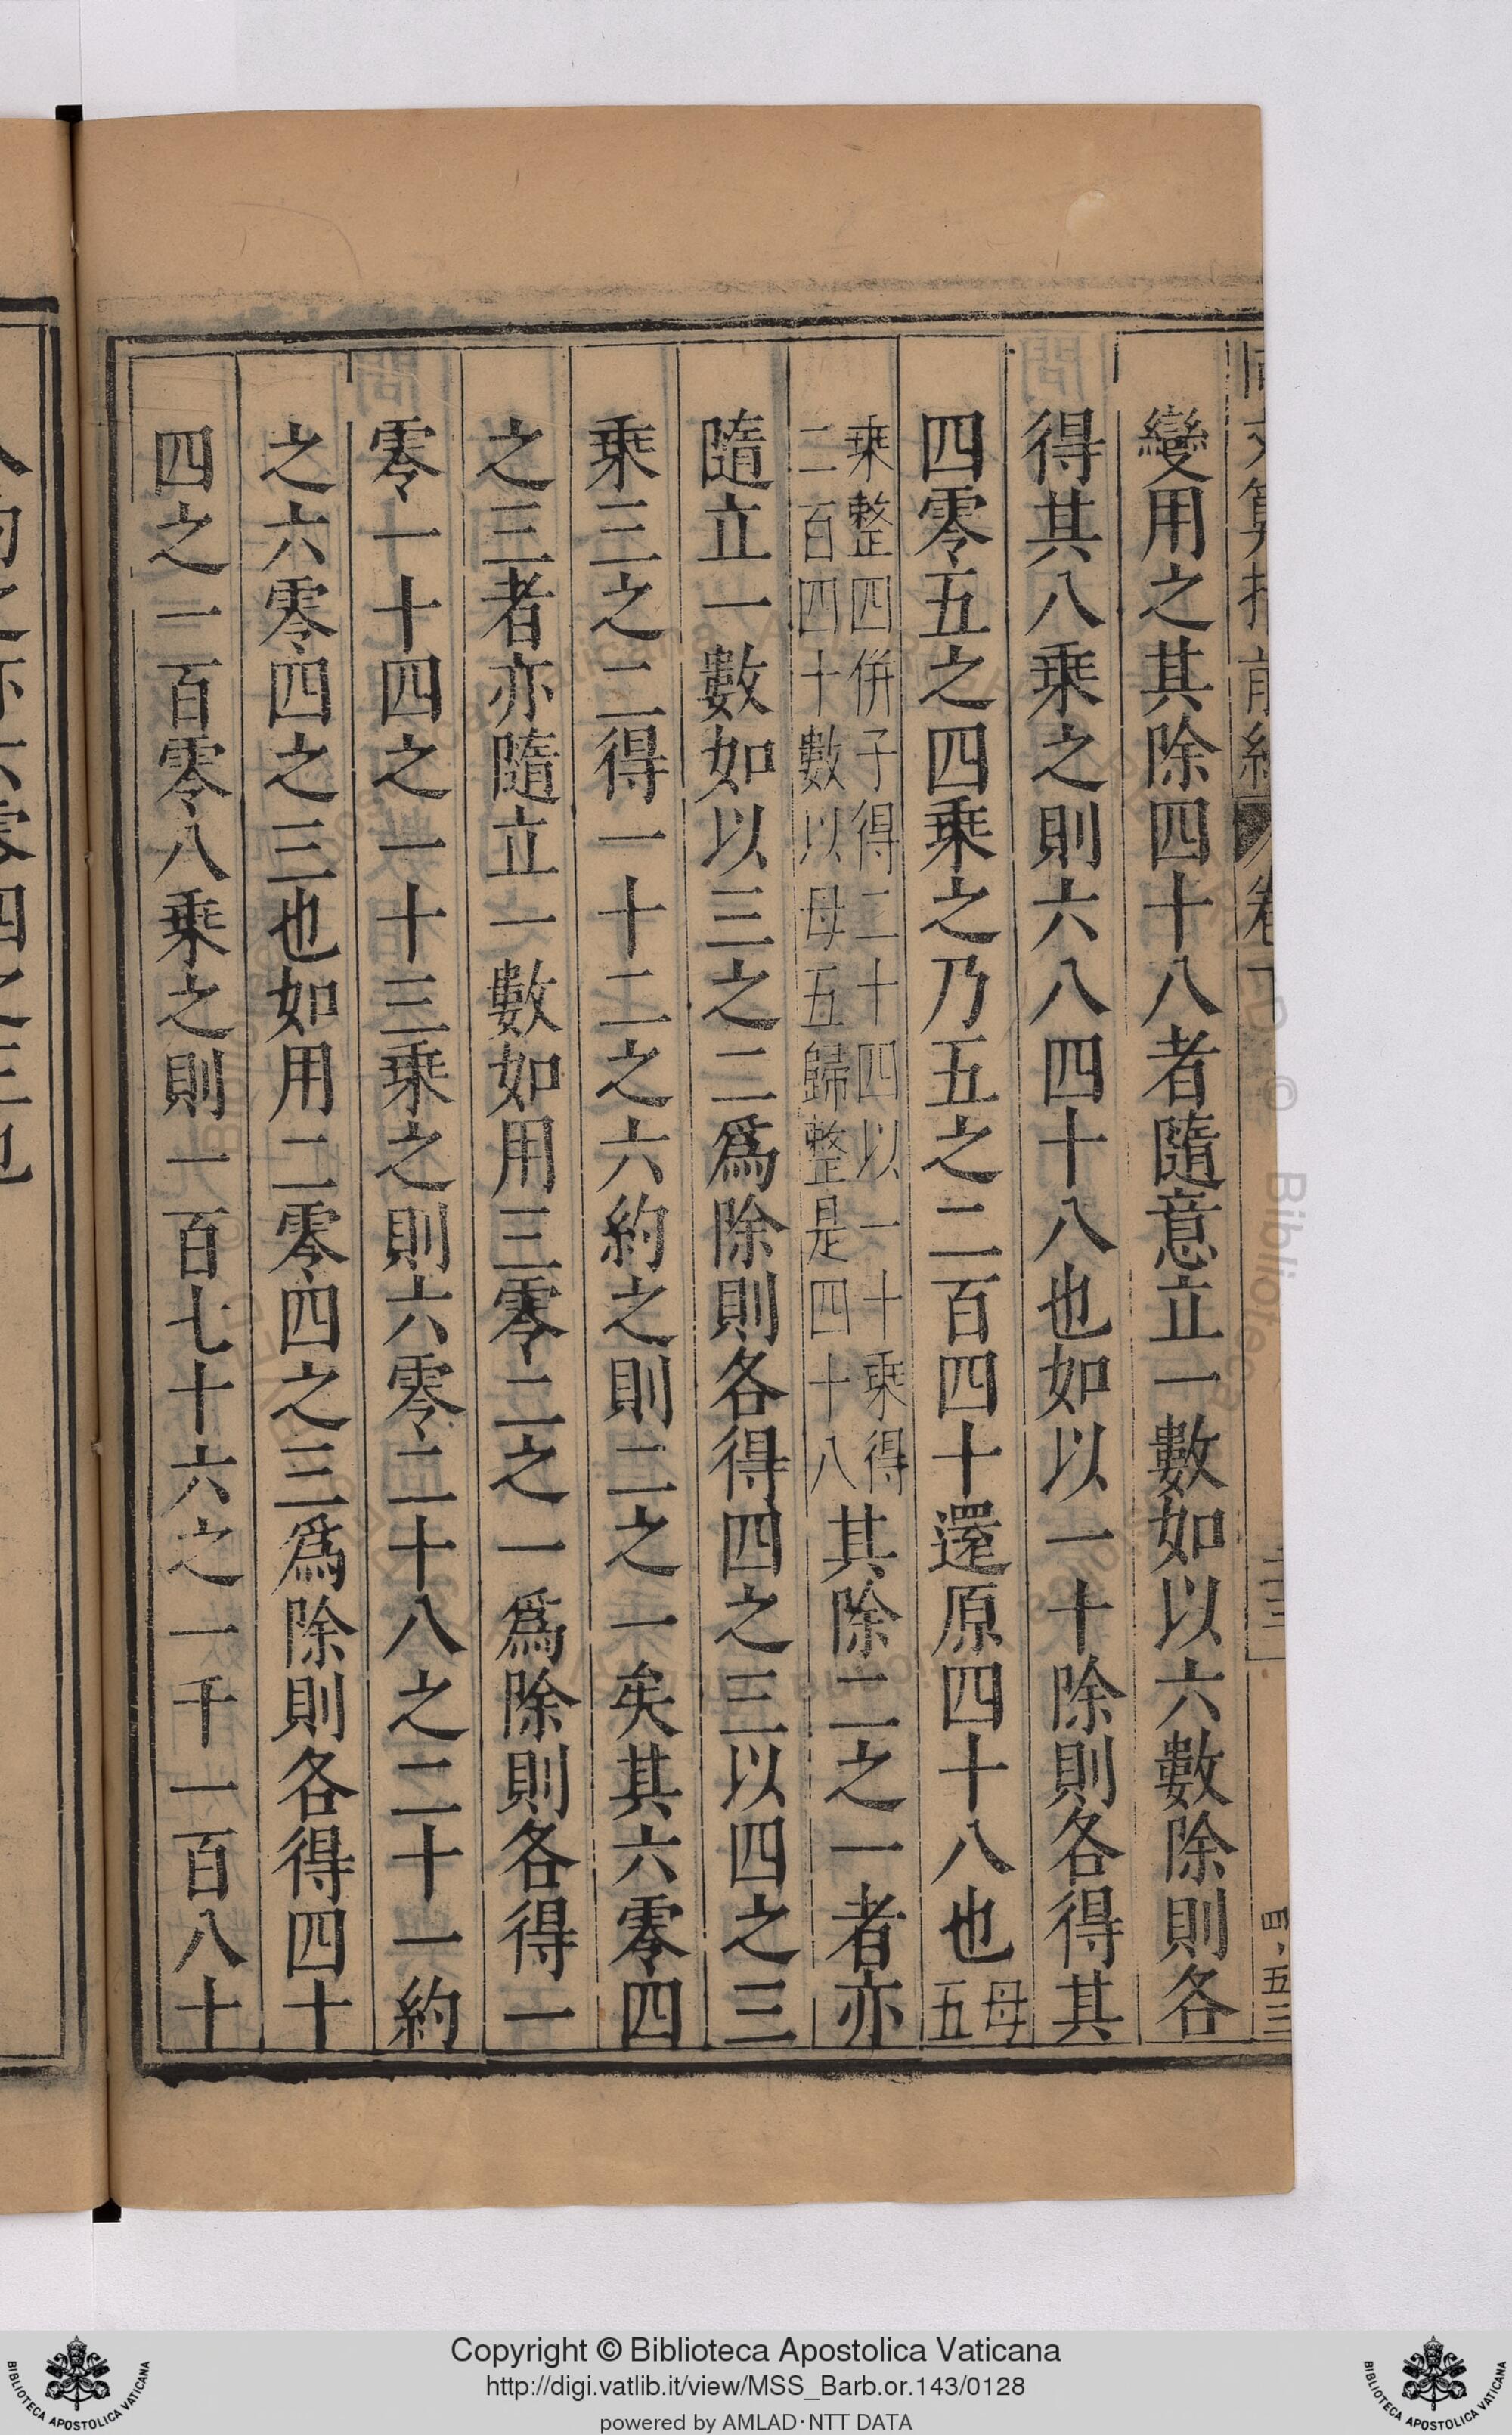 變用之其除四十八者隨意立一數如以六數除則各
得其八乘之則六八四十八也如以一十除則各得其
四零五之四乘之乃五之二百四十還原四十八也母五
乘整四併子得二十四以一十乘得
二百四十數以母五歸整是四十八
其除二之一者亦
隨立一數如以三之二爲除則各得四之三以四之三
乘三之二得一十二之六約之則二之一矣其六零四
之三者亦隨立一數如用三零二之一爲除則各得一
零一十四之一十三乘之則六零二十八之二十一約
之六零四之三也如用二零四之三爲除則各得四十
四之一百零八乘之則一百七十六之一千一百八十
四·五三
Copyright © Biblioteca Apostolica Vaticana
http://digi.vatlib.it/view/MSS_Barb.or.143/0128
powered by AMLAD·NTT DATA
BIBLIOTECA APOSTOLICA VATICANA
BIBLIOTECA APOSTOLICA VATICANA